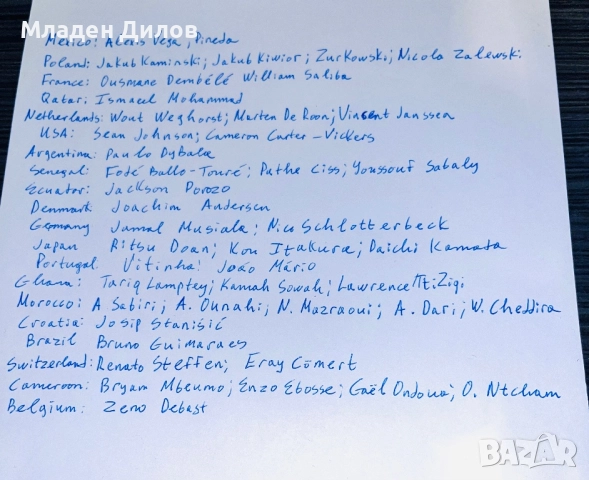 Младен Дилов
Mexico: Alexis Vega, Pineda
Poland: Jakub Kaminski; Jakub Kiwior; Zurkowski; Nicola Zalewski
France: Ousmane Dembélé William Saliba
Qatar: Ismaeel Mohammad
Netherlands: Wout Weghorst; Marten De Roon; Vincent Janssen
USA: Sean Johnson; Cameron Carter-Vickers
Argentina: Paulo Dybala
Senegal: Fodé Ballo-Touré; Pathe Ciss; Youssouf Sabaly
Ecuador: Jackson Porozo
Denmark Joachim Andersen
Germany Jamal Musiala; Nico Schlotterbeck
Japan Ritsu Doan; Kou Itakura; Daichi Kamada
Portugal Vitinha; João Mário
Ghana: Tariq Lamptey; Kamah Sowah; Lawrence Zigi
Morocco: A Sabiri; A. Ounahi; N. Mazraoui; A. Dari; W. Cheddira
Croatia: Josip Stanišić
Brazil Bruno Guimaraes
Switzerland: Renato Steffen; Eray Cömert
Cameroon: Bryam Mbeumo; Enzo Ebosse; Gaël Ondoua; O. Ntcham
Belgium: Zeno Debast
BAZAR